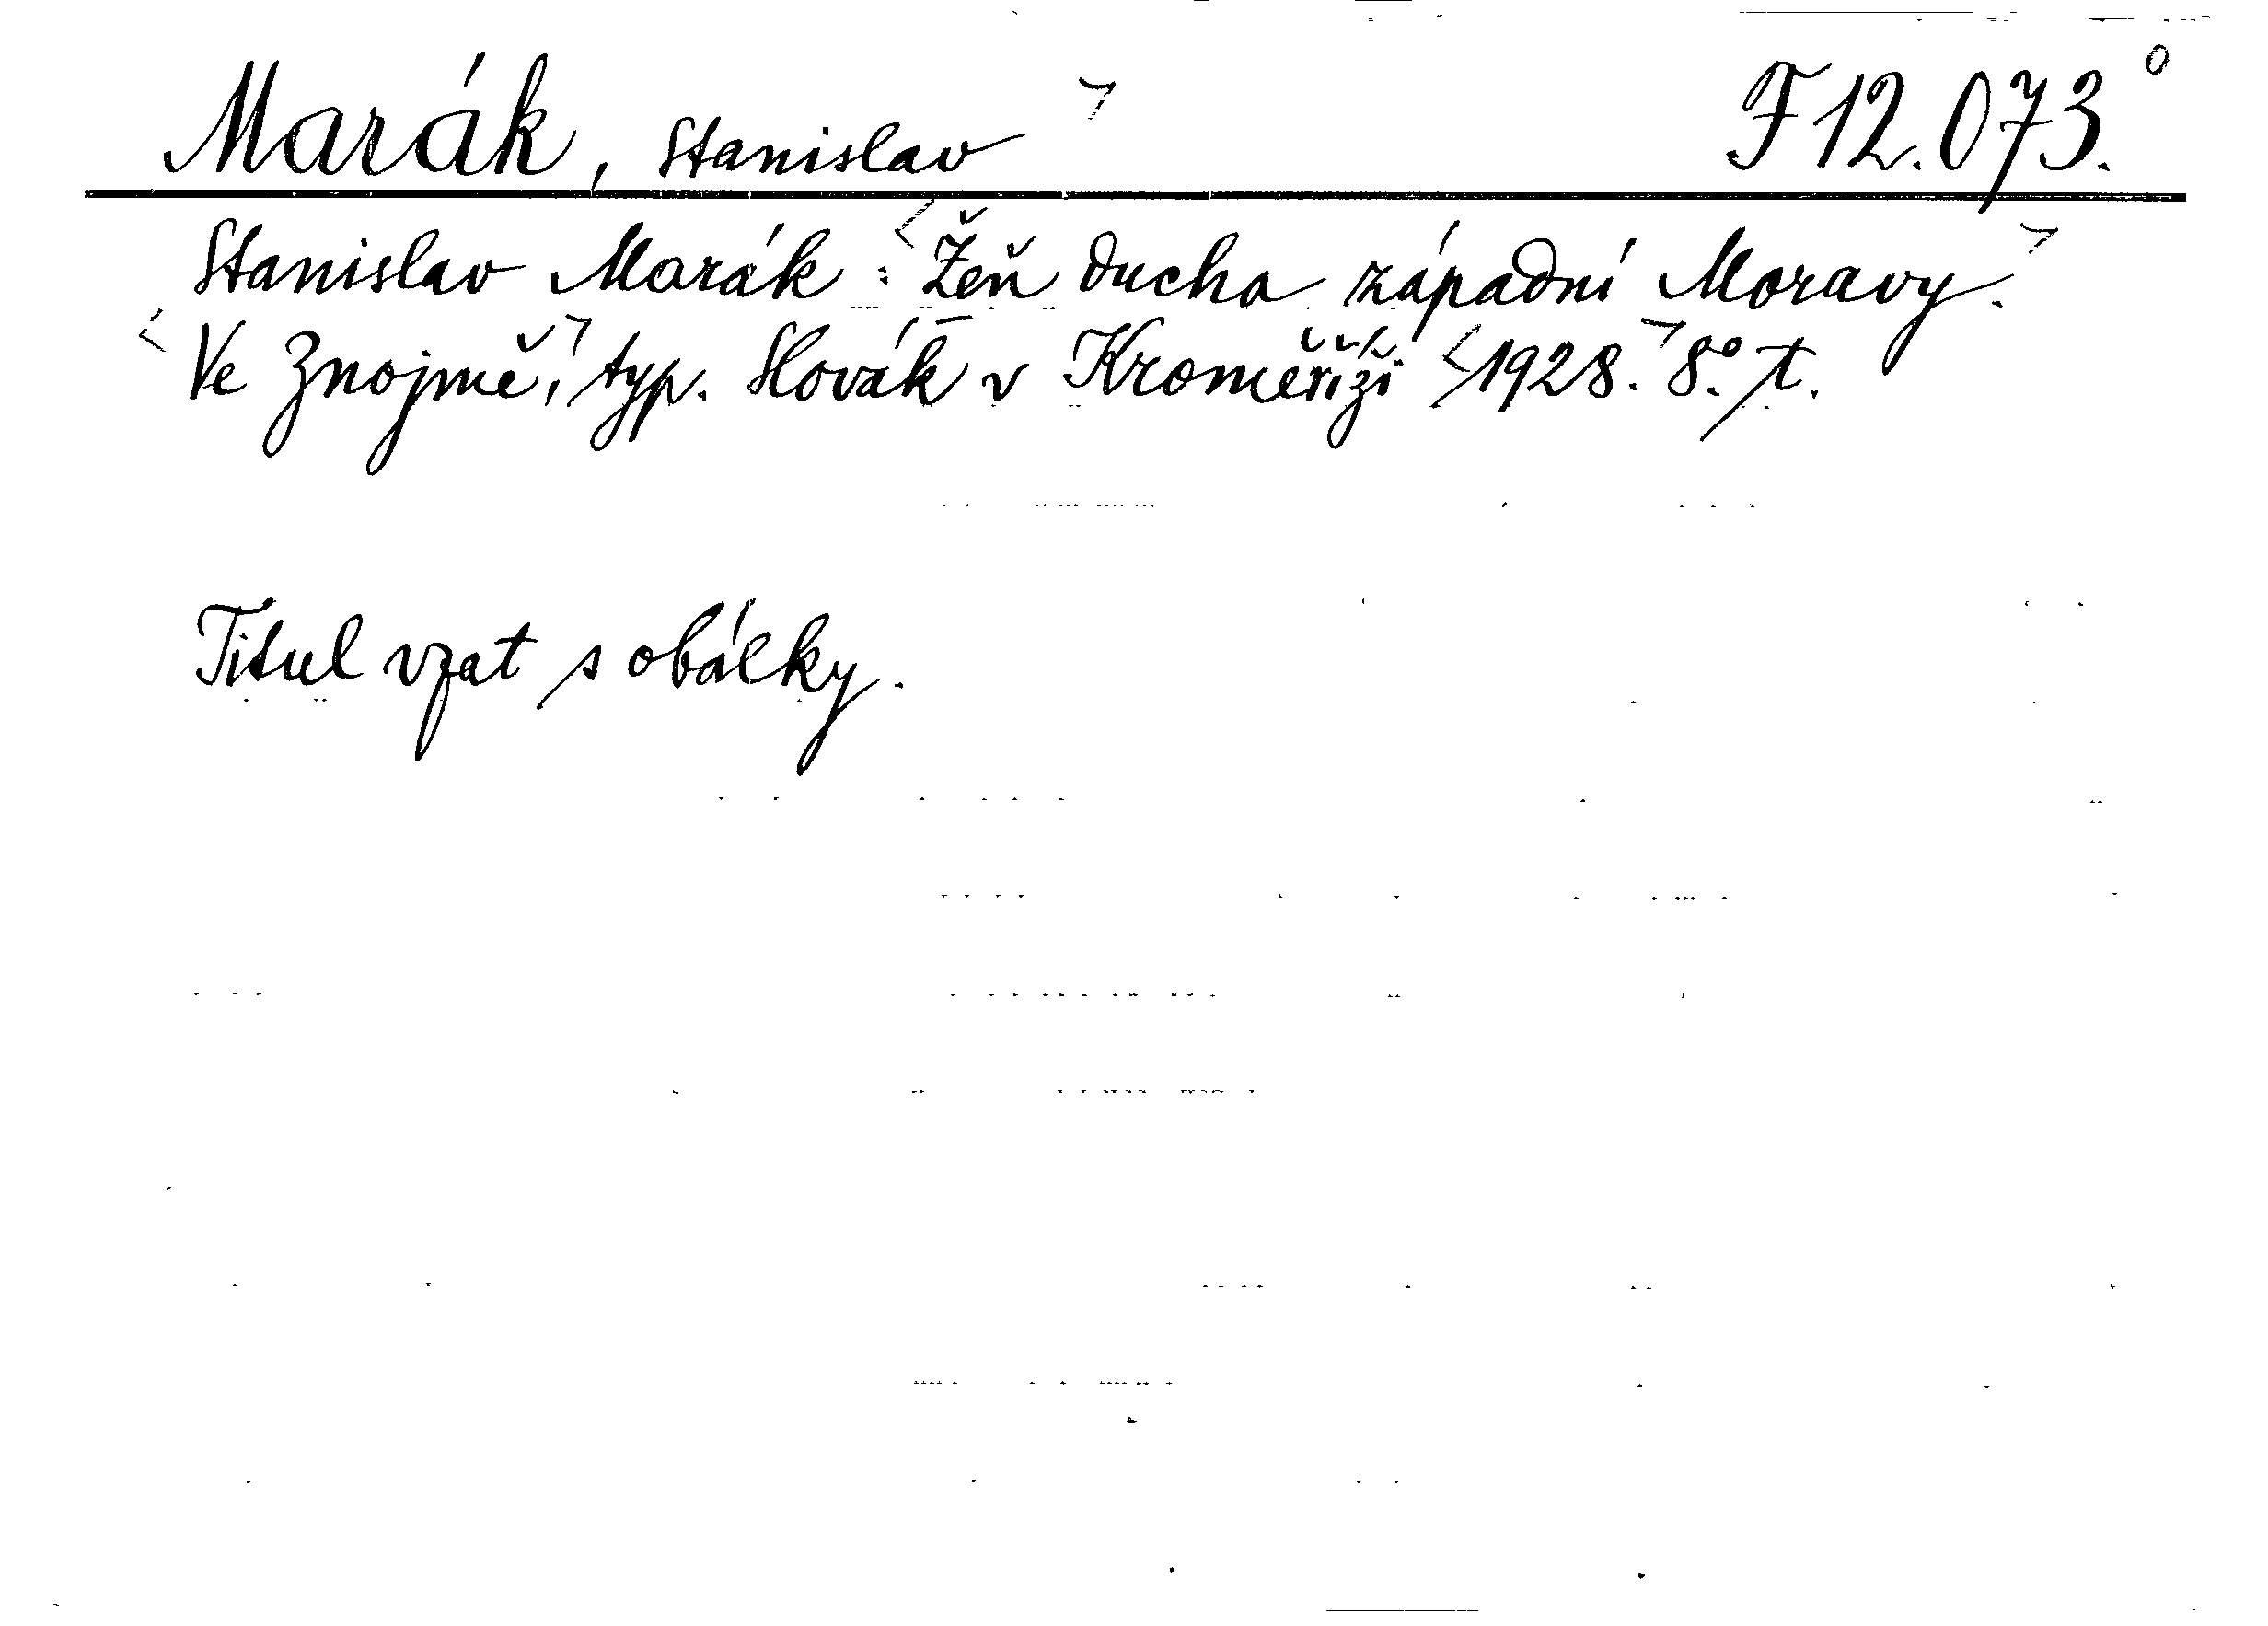 Marák, Stanislav F 12.073.
Stanislav Marák: Žeň ducha západní Moravy.
Ve Znojmě, typ. Slovák v Kroměříži 1928. 8°. t.
Titul vzat s obálky.